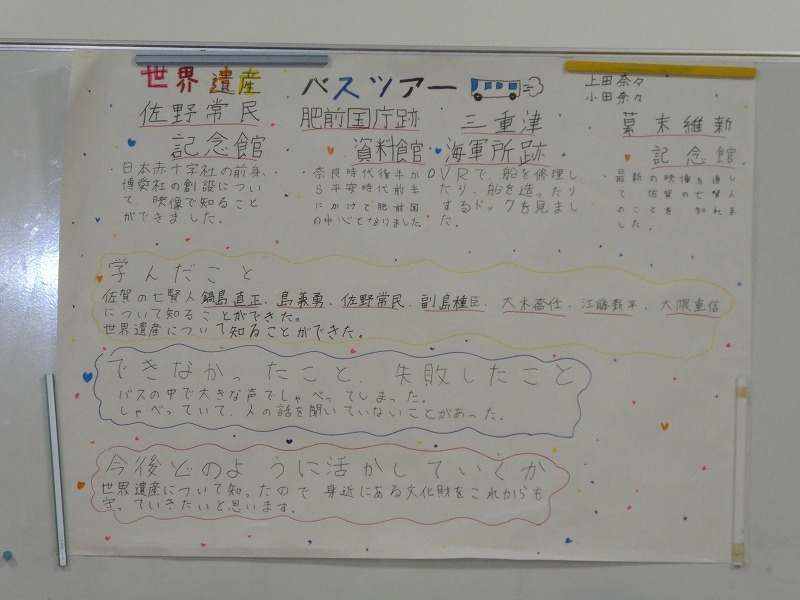 世界遺産 バスツアー
上田奈々
小田奈々
佐野常民
記念館
日本赤十字社の前身、
博愛社の創設につい
て、映像で知ること
ができました。
肥前国庁跡
資料館
奈良時代後半か
ら平安時代前半
にかけて肥前国
の中心となりました。
三重津
海軍所跡
VRで、船を修理し
たり、船を造ったり
するドックを見まし
た。
幕末維新
記念館
最新の映像を通し
て佐賀の七賢人
のことを知れま
した。
学んだこと
佐賀の七賢人鍋島直正、島義勇、佐野常民、副島種臣、大木喬任、江藤新平、大隈重信
について知ることができた。
世界遺産について知ることができた。
できなかったこと、失敗したこと
バスの中で大きな声でしゃべってしまった。
しゃべっていて、人の話を聞いていないことがあった。
今後どのように活かしていくか
世界遺産について知ったので身近にある文化財をこれからも
守っていきたいと思います。